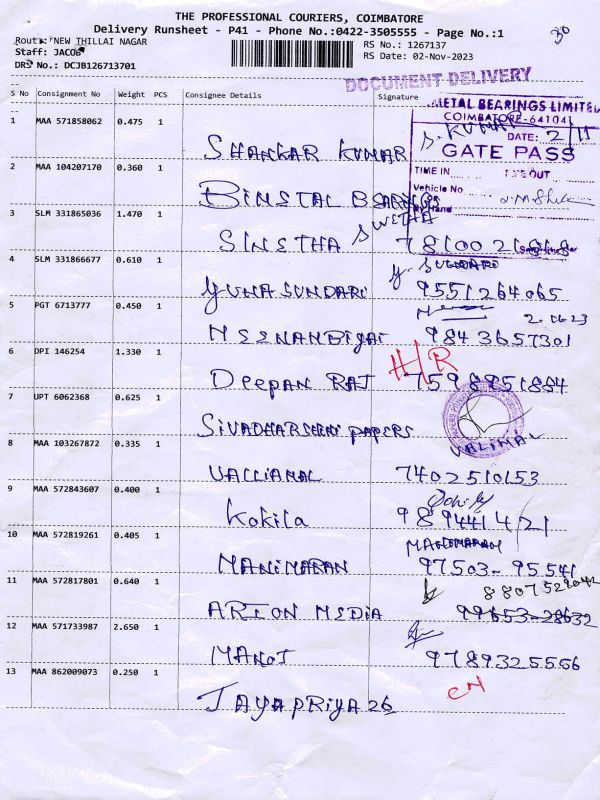 THE PROFESSIONAL COURIERS, COIMBATORE
Delivery Runsheet - P41 - Phone No.:0422-3505555 - Page No.:1
30
Route: NEW THILLAI NAGAR
RS No.: 1267137
Staff: JACOB
RS Date: 02-Nov-2023
DRS No.: DCJB126713701
DOCUMENT DELIVERY
S No Consignment No Weight PCS Consignee Details Signature
METAL BEARINGS LIMITED
COIMBATORE-641041
DATE: 2/11
GATE PASS
TIME IN TIME OUT
Vehicle No
1 MAA 571858062 0.475 1 SHANKAR KUMAR S. KUMAR
2 MAA 104207170 0.360 1 BIMETAL BEARINGS
SWETHA
3 SLM 331865036 1.470 1 SINETHA
4 SLM 331866677 0.610 1 YUNASUNDARI 9551264065
5 PGT 6713777 0.450 1 MEENAMBIGAI 9843657301
6 DPI 146254 1.330 1 DEEPAN RAJ H/R 7598951884
7 UPT 6062368 0.625 1 SIVADHARSHINI PAPERS
VALIMAL
8 MAA 103267872 0.335 1 VALLIAMAL 7402510153
9 MAA 572843607 0.400 1 Kokila 9894414121
MANIMARAN
10 MAA 572819261 0.405 1 MANIMARAN 97503-95541
11 MAA 572817801 0.640 1 ARION MEDIA 99653-28632
12 MAA 571733987 2.650 1 MANOJ 9789325556
13 MAA 862009073 0.250 1 JAYAPRIYA 26 CN